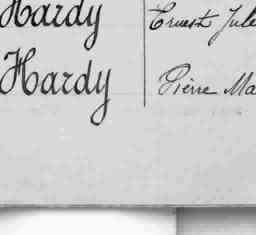 Hardy Ernest Jule
Hardy Pierre Ma